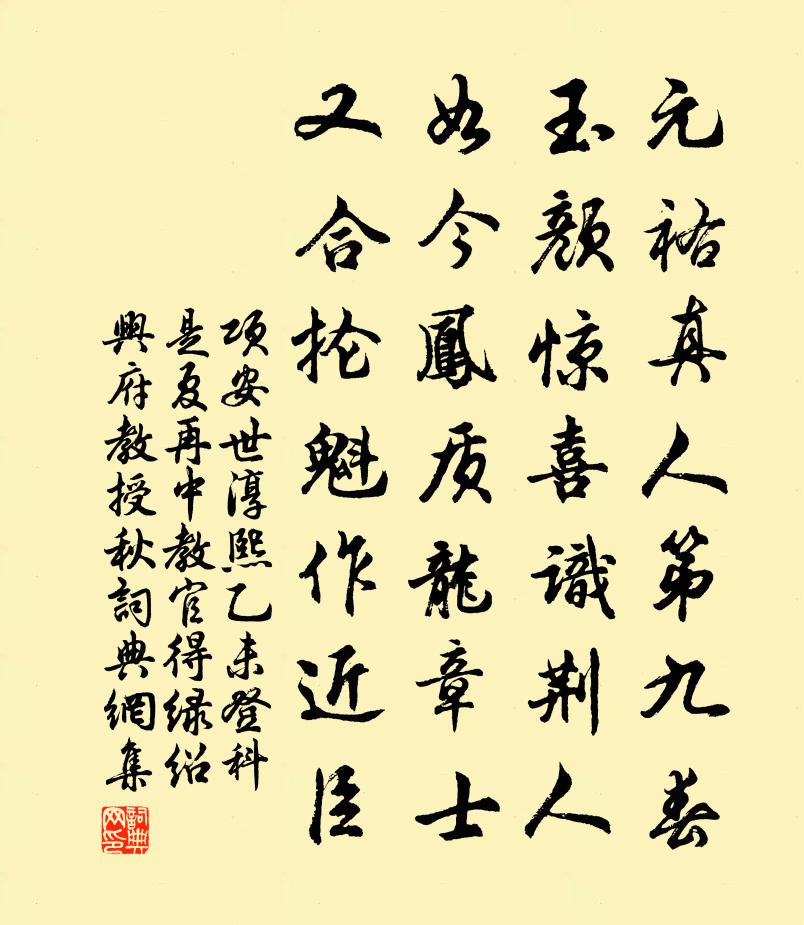 元祐真人第九春
玉颜惊喜識荆人
如今鳳质龍章士
又合抡魁作近臣
项安世淳熙乙未登科
是夏再中教官得绿绍
興府教授秋詞典網集
詞典网印